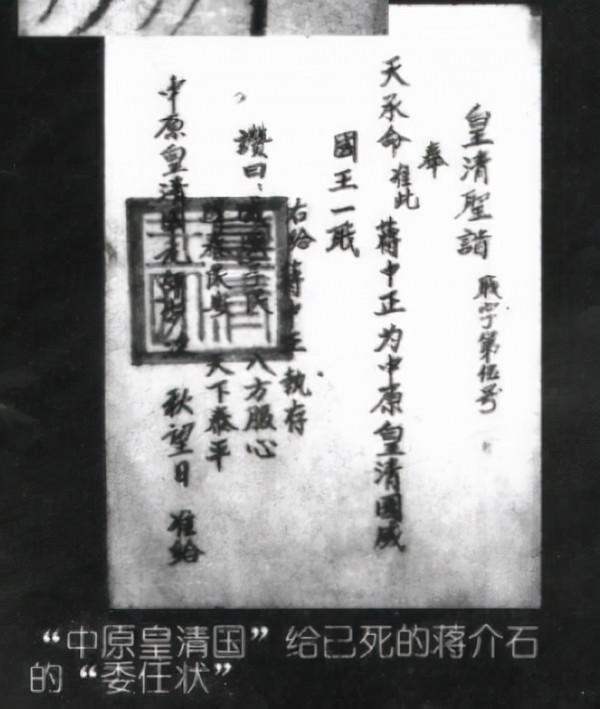 皇清聖詣 職字第伍号
奉
天承命准此 蔣中正为中原皇清國威
國王一职
右给蔣中正执存
讚曰: 八方服心
民安 天下泰平
中原皇清國元 秋望日 准给
“中原皇清国”给已死的蒋介石
的“委任状”